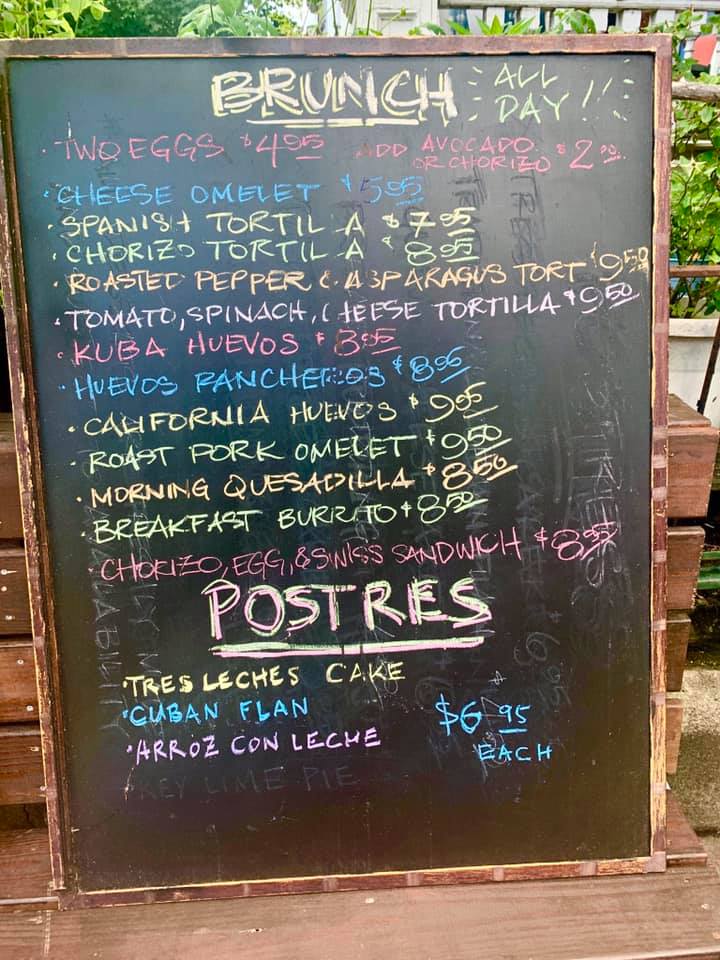 BRUNCH ALL DAY!!
· TWO EGGS $4.95 ADD AVOCADO OR CHORIZO $2.00
· CHEESE OMELET $5.95
· SPANISH TORTIL A $7.95
· CHORIZO TORTIL A $8.95
· ROASTED PEPPER & ASPARAGUS TORT $9.50
· TOMATO, SPINACH, CHEESE TORTILLA $9.50
· KUBA HUEVOS $8.95
· HUEVOS RANCHEROS $8.95
· CALIFORNIA HUEVOS $9.95
· ROAST PORK OMELET $9.50
· MORNING QUESADILLA $8.50
· BREAKFAST BURRITO $8.50
· CHORIZO, EGG, & SWISS SANDWICH $8.95
POSTRES
· TRES LECHES CAKE
· CUBAN FLAN $6.95
· ARROZ CON LECHE EACH
KEY LIME PIE